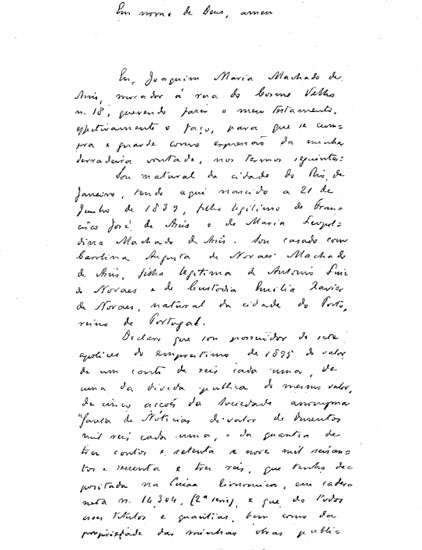 Em nome de Deus, amen
Eu, Joaquim Maria Machado de
Assis, morador á rua do Cosme Velho
n. 18, querendo fazer o meu testamento,
effectivamente o faço, para que se cum-
pra e guarde como expressão da minha
derradeira vontade, nos termos seguintes:
Sou natural da cidade do Rio de
Janeiro, tendo aqui nascido a 21 de
Junho de 1839, filho legitimo de Fran-
cisco José de Assis e de Maria Leopol-
dina Machado de Assis. Sou casado com
Carolina Augusta de Novaes Machado
de Assis, filha legitima de Antonio Luiz
de Novaes e de Custodia Emilia Xavier
de Novaes, natural da cidade do Porto,
reino de Portugal.
Declaro que sou possuidor de sete
apolices do emprestimo de 1895 do valor
de um conto de reis cada uma, de
uma da divida publica do mesmo valor,
de cinco acções da Sociedade anonyma
Gazeta de Noticias do valor de duzentos
mil reis cada uma, e da quantia de
tres contos e setenta e nove mil seiscen-
tos e sessenta e tres reis, que tenho de-
positada na Caixa Economica, em cader-
neta n. 14.304, (2ª serie), e que de todos
esses titulos e quantias, bem como da
propriedade das minhas obras publi-